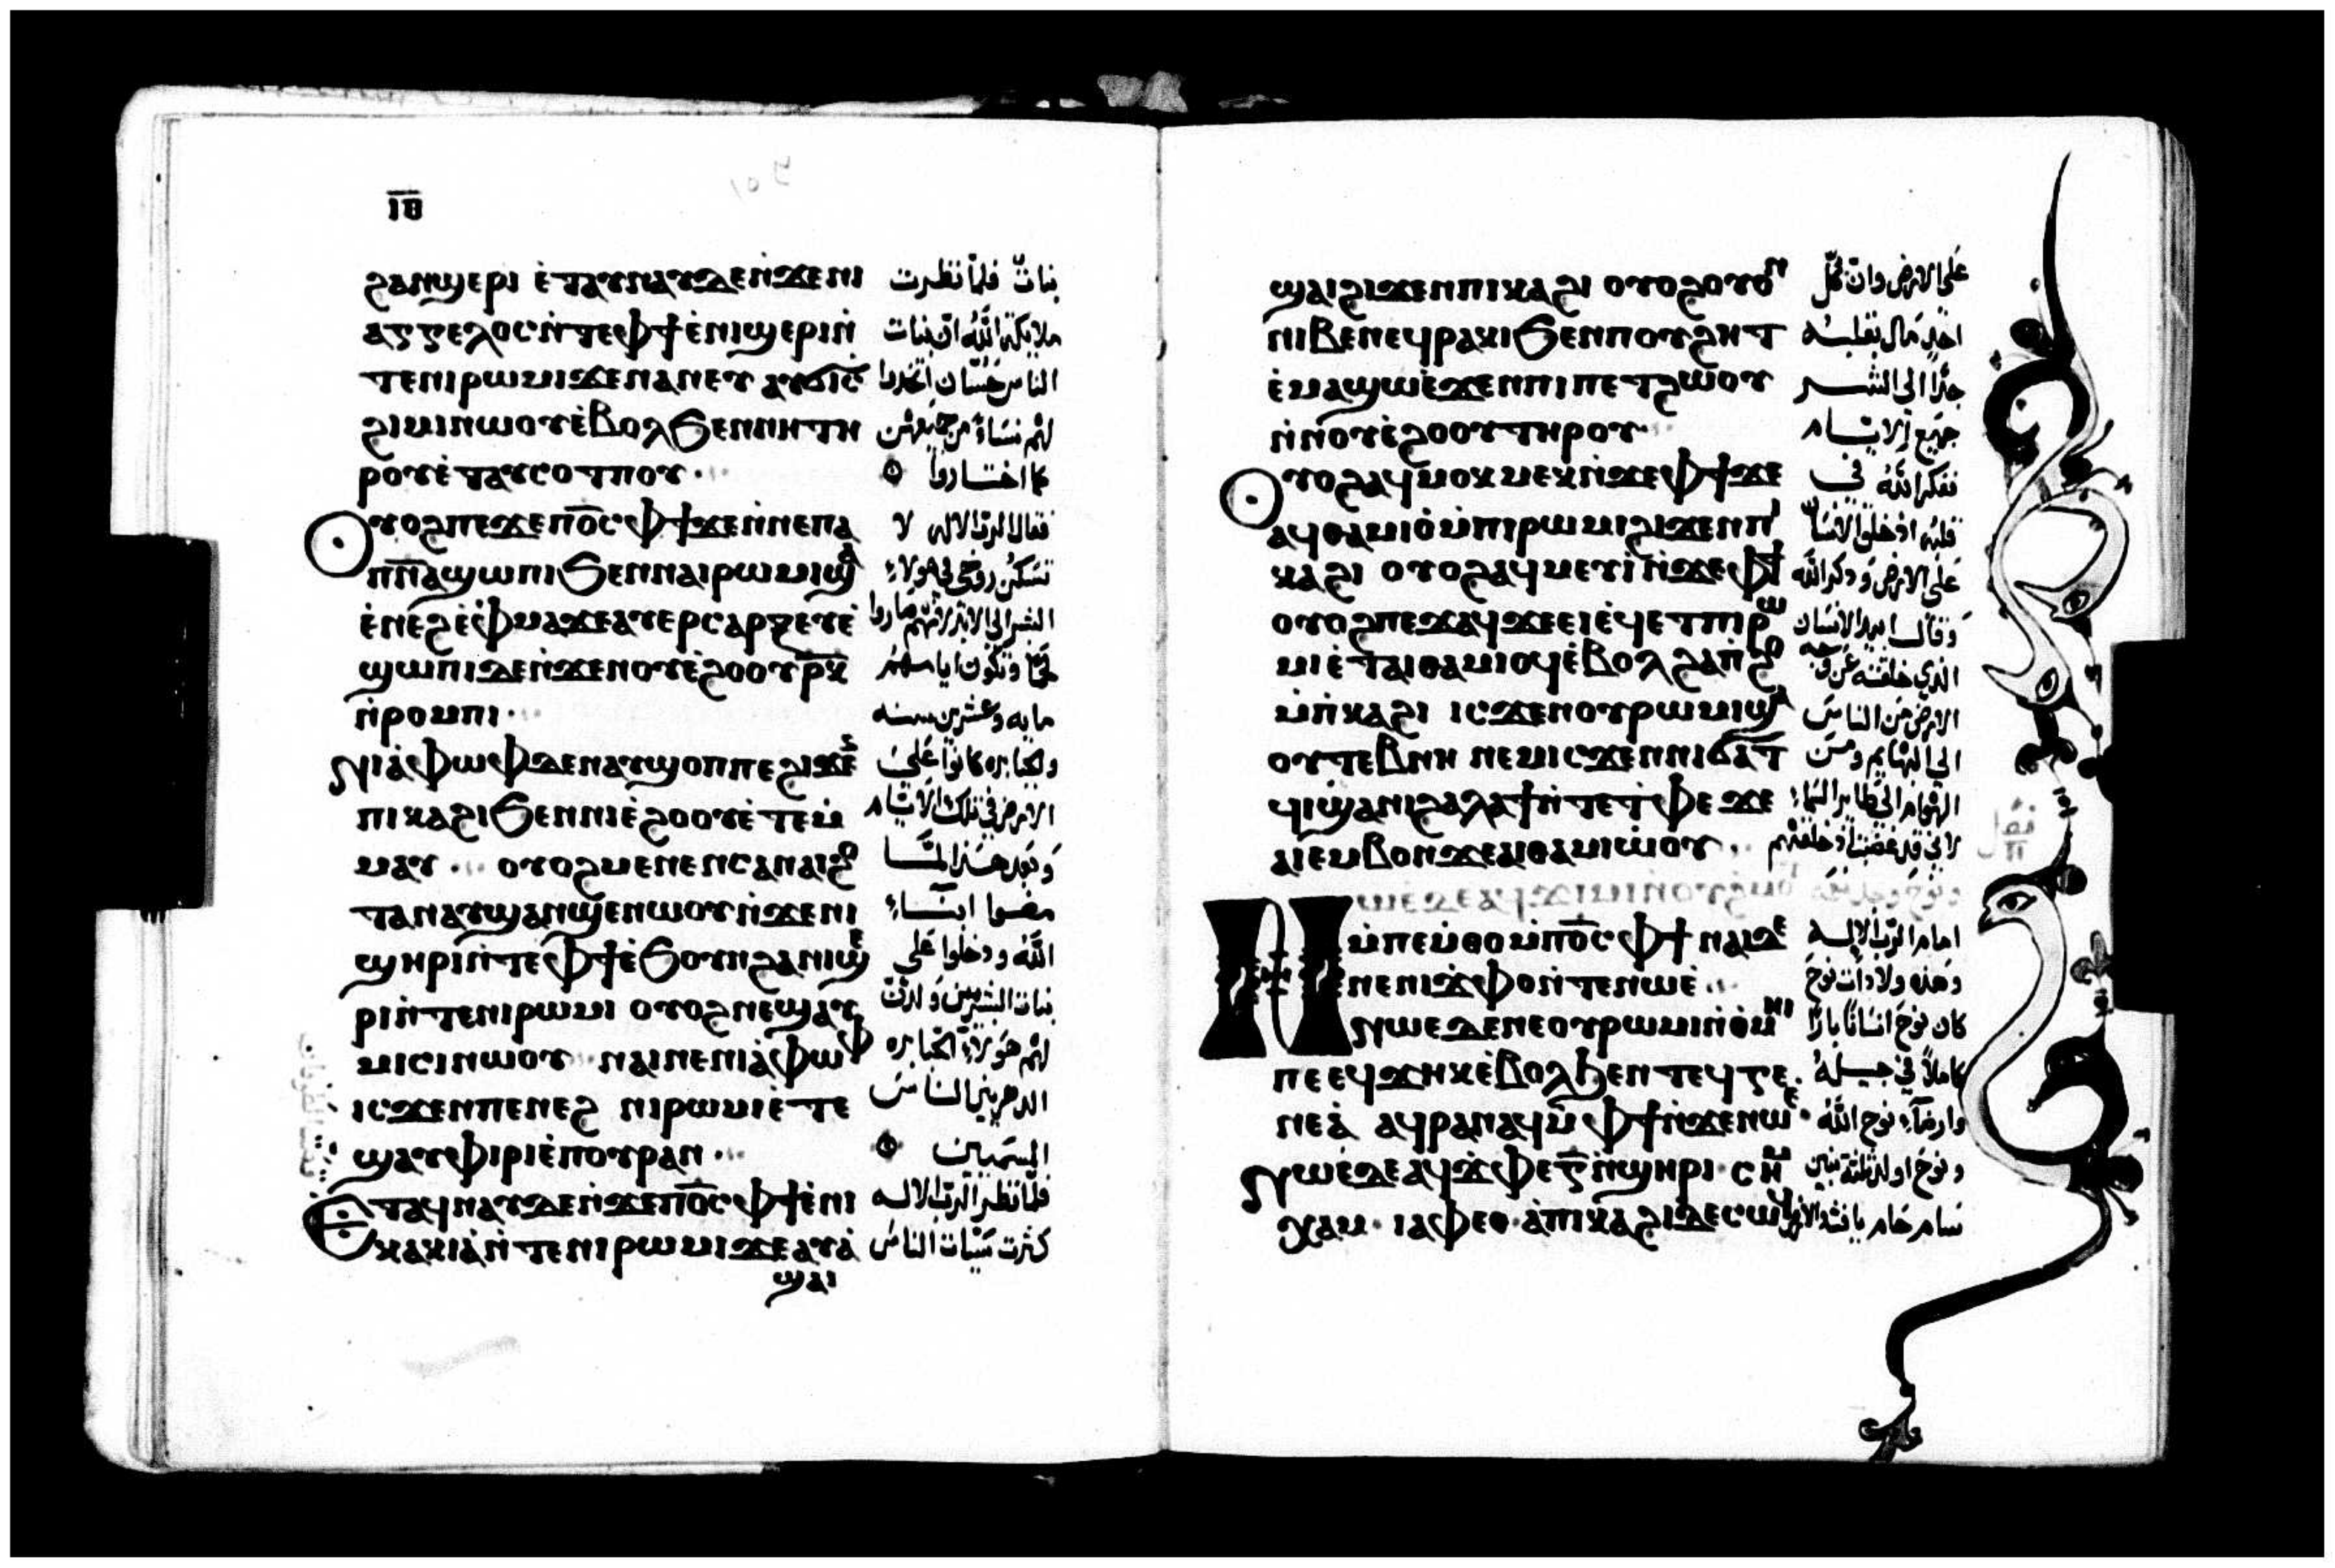 ⲓⲑ
ϩⲁⲛϣⲉⲣⲓ ⲉ̀ⲧⲁⲩⲛⲁⲩⲇⲉⲛ̀ϫⲉⲛⲓ
ⲁⲅⲅⲉⲗⲟⲥⲛ̀ⲧⲉⲫϯⲉ̀ⲛⲓϣⲉⲣⲓⲛ̀
ⲧⲉⲛⲓⲣⲱⲙⲓϫⲉⲛⲁⲛⲉⲩ ⲁⲩϭⲓⲥ̅
ϩⲓⲙⲓⲛⲱⲟⲩⲉ̀ⲃⲟⲗϧⲉⲛⲛⲏⲧⲏ
ⲣⲟⲩⲉ̀ⲧⲁⲩⲥⲟⲧⲡⲟⲩ
ⲟⲩⲟϩⲡⲉϫⲉⲡⲟ̅ⲥ̅ⲫϯϫⲉⲛ̀ⲛⲉⲡⲁ
ⲡⲛ̅ⲁ̅ϣⲱⲡⲓϧⲉⲛⲛⲁⲓⲣⲱⲙⲓϣⲁ
ⲉ̀ⲛⲉϩⲉ̀ⲫⲙⲁϫⲉⲁⲩⲉⲣⲥⲁⲣⲝⲉⲩⲉ̀
ϣⲱⲡⲓⲇⲉⲛ̀ϫⲉⲛⲟⲩⲉ̀ϩⲟⲟⲩⲣ̅ⲕ̅
ⲛ̀ⲣⲟⲙⲡⲓ
ⲛⲓⲁ̀ⲫⲱⲫⲇⲉⲛⲁⲩϣⲟⲡⲡⲉϩⲓϫⲉⲛ
ⲡⲓⲕⲁϩⲓϧⲉⲛⲛⲓⲉ̀ϩⲟⲟⲩⲉ̀ⲧⲉⲙ̀
ⲙⲁⲩ ⲟⲩⲟϩⲙⲉⲛⲉⲛⲥⲁⲛⲁⲓϩⲟ
ⲧⲁⲛⲁⲩϣⲁⲛϣⲉⲛⲱⲟⲩⲛ̀ϫⲉⲛⲓ
ϣⲏⲣⲓⲛ̀ⲧⲉⲫϯⲉ̀ϧⲟⲩⲛϩⲁⲛⲓϣⲉ
ⲣⲓⲛ̀ⲧⲉⲛⲓⲣⲱⲙⲓ ⲟⲩⲟϩⲛⲉϣⲁⲩ
ⲙⲓⲥⲓⲛⲱⲟⲩ ⲛⲁⲓⲛⲉⲛⲓⲁ̀ⲫⲱⲫ
ⲓⲥϫⲉⲛⲡⲉⲛⲉϩ ⲛⲓⲣⲱⲙⲓⲉ̀ⲧⲉ
ϣⲁⲩⲫⲓⲣⲓⲉ̀ⲡⲟⲩⲣⲁⲛ
ⲉ̀ⲧⲁϥⲛⲁⲩⲇⲉⲛ̀ϫⲉⲡⲟ̅ⲥ̅ⲫϯⲉ̀ⲛⲓ
ⲕⲁⲕⲓⲁ̀ⲛ̀ⲧⲉⲛⲓⲣⲱⲙⲓϫⲉⲁⲩⲁ̀
ϣⲁⲓ
بنات فلما نظرت
ملايكة الله ان بنات
الناس حسان اتخدوا
لهم نساء من جميعهن
كما اختاروا
فقال الرب الاله لا
تسكن روحي في هولاء
البشر الي الابد لانهم صاروا
لحما وتكون ايامهم
مايه وعشرين سنه
والجبابره كانوا علي
الارض في تلك الايام
وبعد هذا لما
مضوا ابناء
الله ودخلوا علي
بنات البشريين ولدت
لهم هولاء الجبابره
الدهريين الناس
المسميين
فلما نظر الرب الاله
كثرت سيات الناس
ϣⲁⲓϩⲓϫⲉⲛⲡⲓⲕⲁϩⲓ ⲟⲩⲟϩⲟⲩⲟⲛ
ⲛⲓⲃⲉⲛⲉϥⲣⲁⲕⲓϧⲉⲛⲡⲟⲩϩⲏⲧ
ⲉ̀ⲙⲁϣⲱⲉ̀ϫⲉⲛⲡⲓⲡⲉⲧϩⲱⲟⲩ
ⲛ̀ⲛⲟⲩⲉ̀ϩⲟⲟⲩⲧⲏⲣⲟⲩ
ⲟⲩⲟϩⲁϥⲙⲟⲕⲙⲉⲕⲛ̀ϫⲉⲫϯϫⲉ
ⲁϥⲑⲁⲙⲓⲟ̀ⲙ̀ⲡⲓⲣⲱⲙⲓϩⲓϫⲉⲛⲡⲓ
ⲕⲁϩⲓ ⲟⲩⲟϩⲁϥⲙⲉⲩⲓ̀ⲛ̀ϫⲉⲫϯ
ⲟⲩⲟϩⲡⲉϫⲁϥϫⲉⲉⲓⲉ̀ϥⲉⲧⲡⲓⲣⲱ
ⲙⲓⲉ̀ⲧⲁⲓⲑⲁⲙⲓⲟϥⲉ̀ⲃⲟⲗϩⲁⲡϩⲟ
ⲙ̀ⲡ̀ⲕⲁϩⲓ ⲓⲥϫⲉⲛⲟⲩⲣⲱⲙⲓϣⲁ
ⲟⲩⲧⲉⲃⲛⲏ ⲛⲉⲙⲓⲥϫⲉⲛⲛⲓϭⲁⲧ
ϥⲓϣⲁⲛⲓϩⲁⲗⲁϯⲛ̀ⲧⲉⲧ̀ⲫⲉ ϫⲉ
ⲁⲓⲉⲙⲃⲟⲛϫⲉⲁⲓⲑⲁⲙⲓⲱ̀ⲟⲩ
ⲙ̀ⲡⲉⲙ̀ⲑⲟⲙ̀ⲡⲟ̅ⲥ̅ⲫϯ ⲛⲁⲓⲇⲉ
ⲛⲉⲛⲓϫ̀ⲫⲟⲛ̀ⲧⲉⲛⲱⲉ̀
ⲛⲱⲉⲇⲉⲛⲉⲟⲩⲣⲱⲙⲓⲛ̀ⲑ̀ⲙⲏⲓ
ⲡⲉⲉϥϫⲏⲕⲉ̀ⲃⲟⲗϧⲉⲛⲧⲉϥⲅⲉ
ⲛⲉⲁ̀ ⲁϥⲣⲁⲛⲁϥⲙ̀ⲫϯⲛ̀ϫⲉⲛⲱⲉ
ⲛⲱⲉ̀ⲇⲉⲁϥϫ̀ⲫⲉⲅ̅ⲛ̀ϣⲏⲣⲓ ⲥⲏⲙ
ⲭⲁⲙ ⲓⲁⲫⲉⲑ ⲁ̀ⲡⲓⲕⲁϩⲓⲇⲉⲥⲱϥ
علي الارض وان كل
احد مال بقلبه
جدا الي الشر
جميع الايام
تفكر الله في
قلبه اذ خلق الانسان
علي الارض وذكر الله
وقال ابيد الانسان
الذي خلقته عن وجه
الارض من الناس
الي البهايم ومن
الهوام الي طاير السماء
لاني قد غضبت اذ خلقتهم
امام الرب الاله
وهذه ولادات نوح
كان نوح انسانا بارا
كاملا في جيله
وارضاء نوح الله
ونوح اولد ثلثة بنين
سام حام يافث